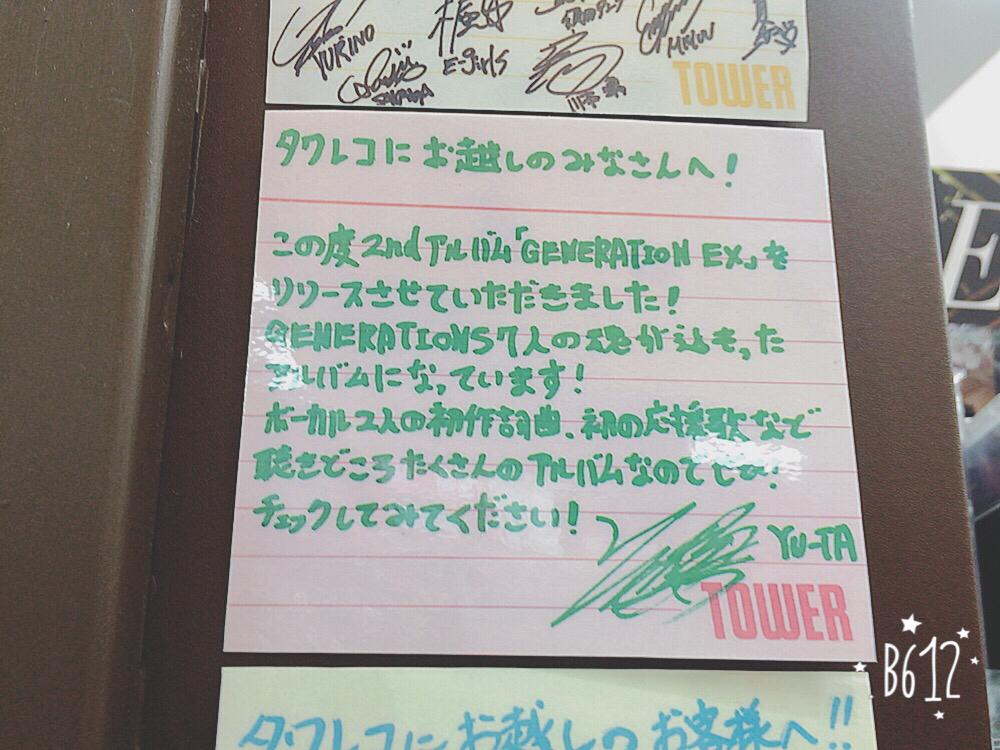 YURINO
E-girls
TOWER
タワレコに お越しの みなさんへ!
この度 2ndアルバム「GENERATION EX」を
リリースさせていただきました!
GENERATIONS7人の魂が込もった
アルバムになっています!
ボーカル2人の初作詞曲、初の応援歌など
聴きどころたくさんのアルバムなのでぜひ!
チェックしてみてください!
YU-TA
TOWER
タワレコにお越しのお客様へ!!
E
B612